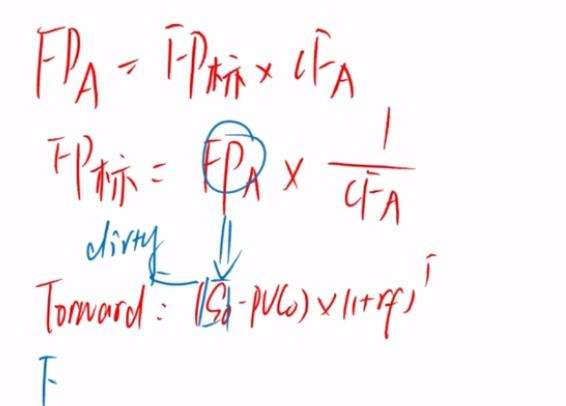 FP_A = FP_标 × CF_A
FP_标 = FP_A × 1/CF_A
dirty
Forward: (S_0 - PVC_0) × (1+rf)^T
F